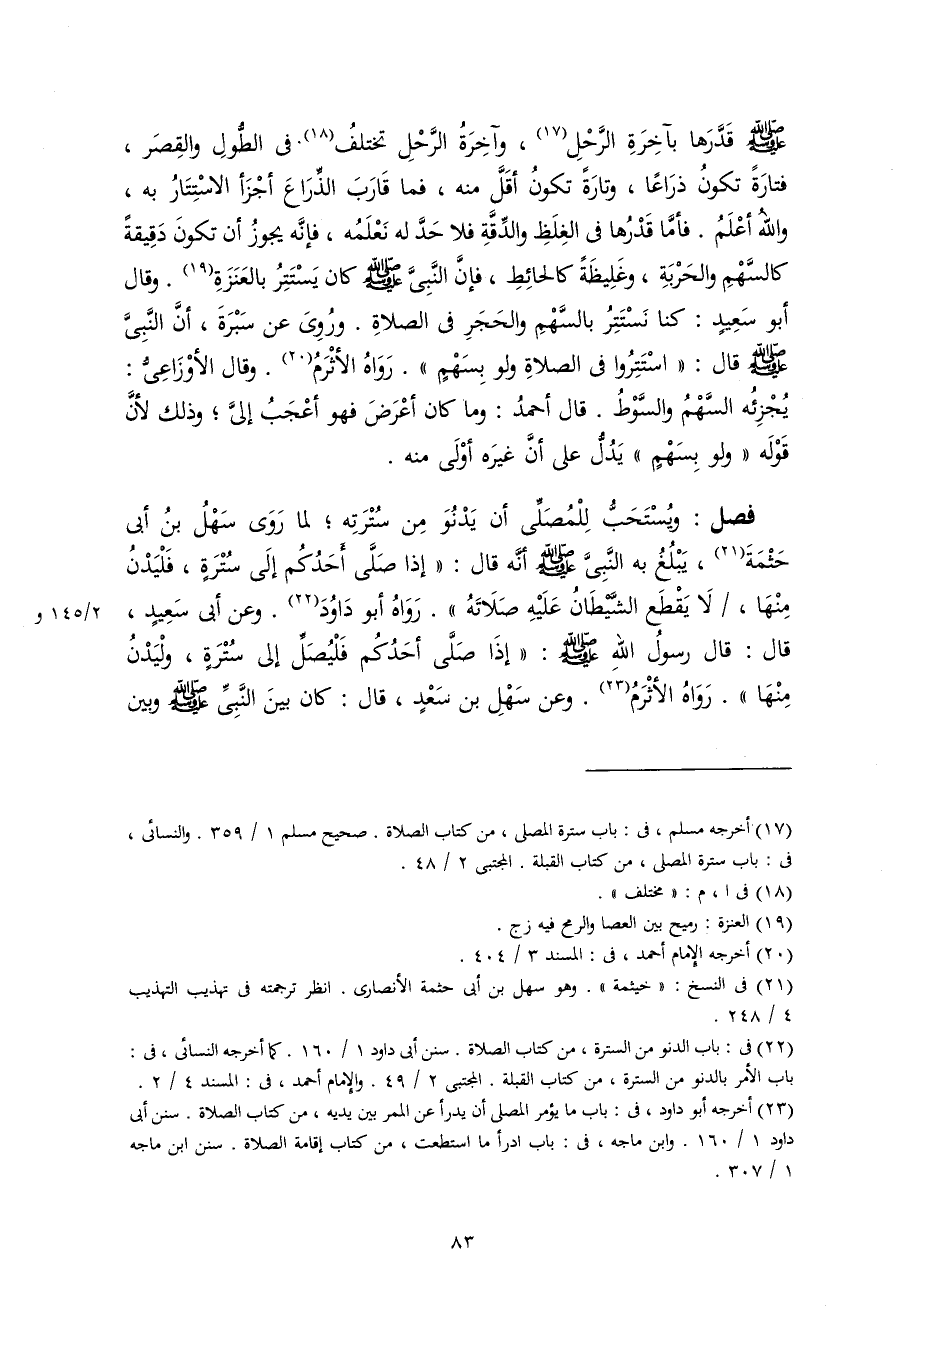 ﷺ قَدَّرَها بآخِرَةِ الرَّحْلِ(١٧) ، وآخِرَةُ الرَّحْلِ تختلفُ(١٨) فى الطُّولِ والقِصَر ،
فتارَةً تكونُ ذراعًا ، وتارَةً تكونُ أقَلَّ منه ، فما قَارَبَ الذِّراعَ أجْزَأ الاسْتِتَارُ به ،
واللهُ أعْلَمُ . فأمَّا قَدْرُها فى الغِلَظِ والدِّقَّةِ فلا حَدَّ له نَعْلَمُه ، فإنَّه يجوزُ أن تكونَ دَقِيقةً
كالسَّهْمِ والحَرْبَةِ ، وغَلِيظَةً كالحائِطِ ، فإنَّ النَّبِىَّ ﷺ كان يَسْتَتِرُ بالعَنَزَةِ(١٩) . وقال
أبو سَعِيدٍ : كنا نَسْتَتِرُ بالسَّهْمِ والحَجَرِ فى الصلاةِ . ورُوِىَ عن سَبْرَةَ ، أنَّ النَّبِىَّ
ﷺ قال : « اسْتَتِرُوا فى الصلاةِ ولو بِسَهْمٍ » . رَوَاهُ الأثْرَمُ(٢٠) . وقال الأوْزَاعِىُّ :
يُجْزِئُه السَّهْمُ والسَّوْطُ . قال أحمدُ : وما كان أعْرَضَ فهو أعْجَبُ إلىَّ ؛ وذلك لأنَّ
قَوْلَه « ولو بِسَهْمٍ » يَدُلُّ على أنَّ غيرَه أوْلَى منه .
فصل : ويُسْتَحَبُّ لِلْمُصَلِّى أن يَدْنُوَ مِن سُتْرَتِه ؛ لما رَوَى سَهْلُ بنُ أبى
حَثْمَةَ(٢١) ، يَبْلُغُ به النَّبِىَّ ﷺ أنَّه قال : « إذا صَلَّى أَحَدُكُم إلَى سُتْرَةٍ ، فَلْيَدْنُ
مِنْهَا ، / لَا يَقْطَعِ الشَّيْطَانُ عَلَيْهِ صَلَاتَهُ » . رَوَاهُ أبو دَاوُدَ(٢٢) . وعن أبى سَعِيدٍ ، ١٤٥/٢ و
قال : قال رسولُ اللهِ ﷺ : « إذَا صَلَّى أحَدُكُم فَلْيُصَلِّ إلى سُتْرَةٍ ، ولْيَدْنُ
مِنْهَا » . رَوَاهُ الأثْرَمُ(٢٣) . وعن سَهْلِ بن سَعْدٍ ، قال : كان بينَ النَّبِىِّ ﷺ وبين
(١٧) أخرجه مسلم ، فى : باب سترة المصلى ، من كتاب الصلاة . صحيح مسلم ١ / ٣٥٩ . والنسائى ،
فى : باب سترة المصلى ، من كتاب القبلة . المجتبى ٢ / ٤٨ .
(١٨) فى ا ، م : « مختلف » .
(١٩) العنزة : رميح بين العصا والرمح فيه زج .
(٢٠) أخرجه الإمام أحمد ، فى : المسند ٣ / ٤٠٤ .
(٢١) فى النسخ : « خيثمة » . وهو سهل بن أبى حثمة الأنصارى . انظر ترجمته فى تهذيب التهذيب
٤ / ٢٤٨ .
(٢٢) فى : باب الدنو من السترة ، من كتاب الصلاة . سنن أبى داود ١ / ١٦٠ . كما أخرجه النسائى ، فى :
باب الأمر بالدنو من السترة ، من كتاب القبلة . المجتبى ٢ / ٤٩ . والإمام أحمد ، فى : المسند ٤ / ٢ .
(٢٣) أخرجه أبو داود ، فى : باب ما يؤمر المصلى أن يدرأ عن الممر بين يديه ، من كتاب الصلاة . سنن أبى
داود ١ / ١٦٠ . وابن ماجه ، فى : باب ادرأ ما استطعت ، من كتاب إقامة الصلاة . سنن ابن ماجه
١ / ٣٠٧ .
٨٣